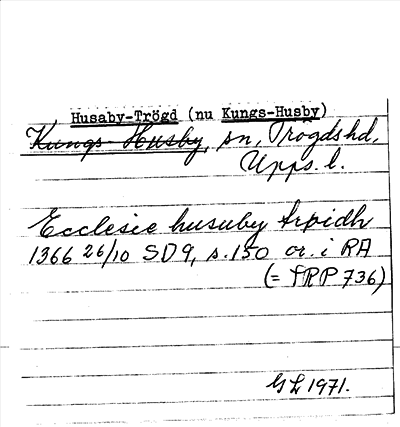 Husaby-Trögd (nu Kungs-Husby)
Kungs-Husby, sn, Trögdshd,
Upps. l.
Ecclesie husuby trøidh
1366 26/10 SD 9, s. 150 or. i RA
(= SRP 736)
GL 1971.